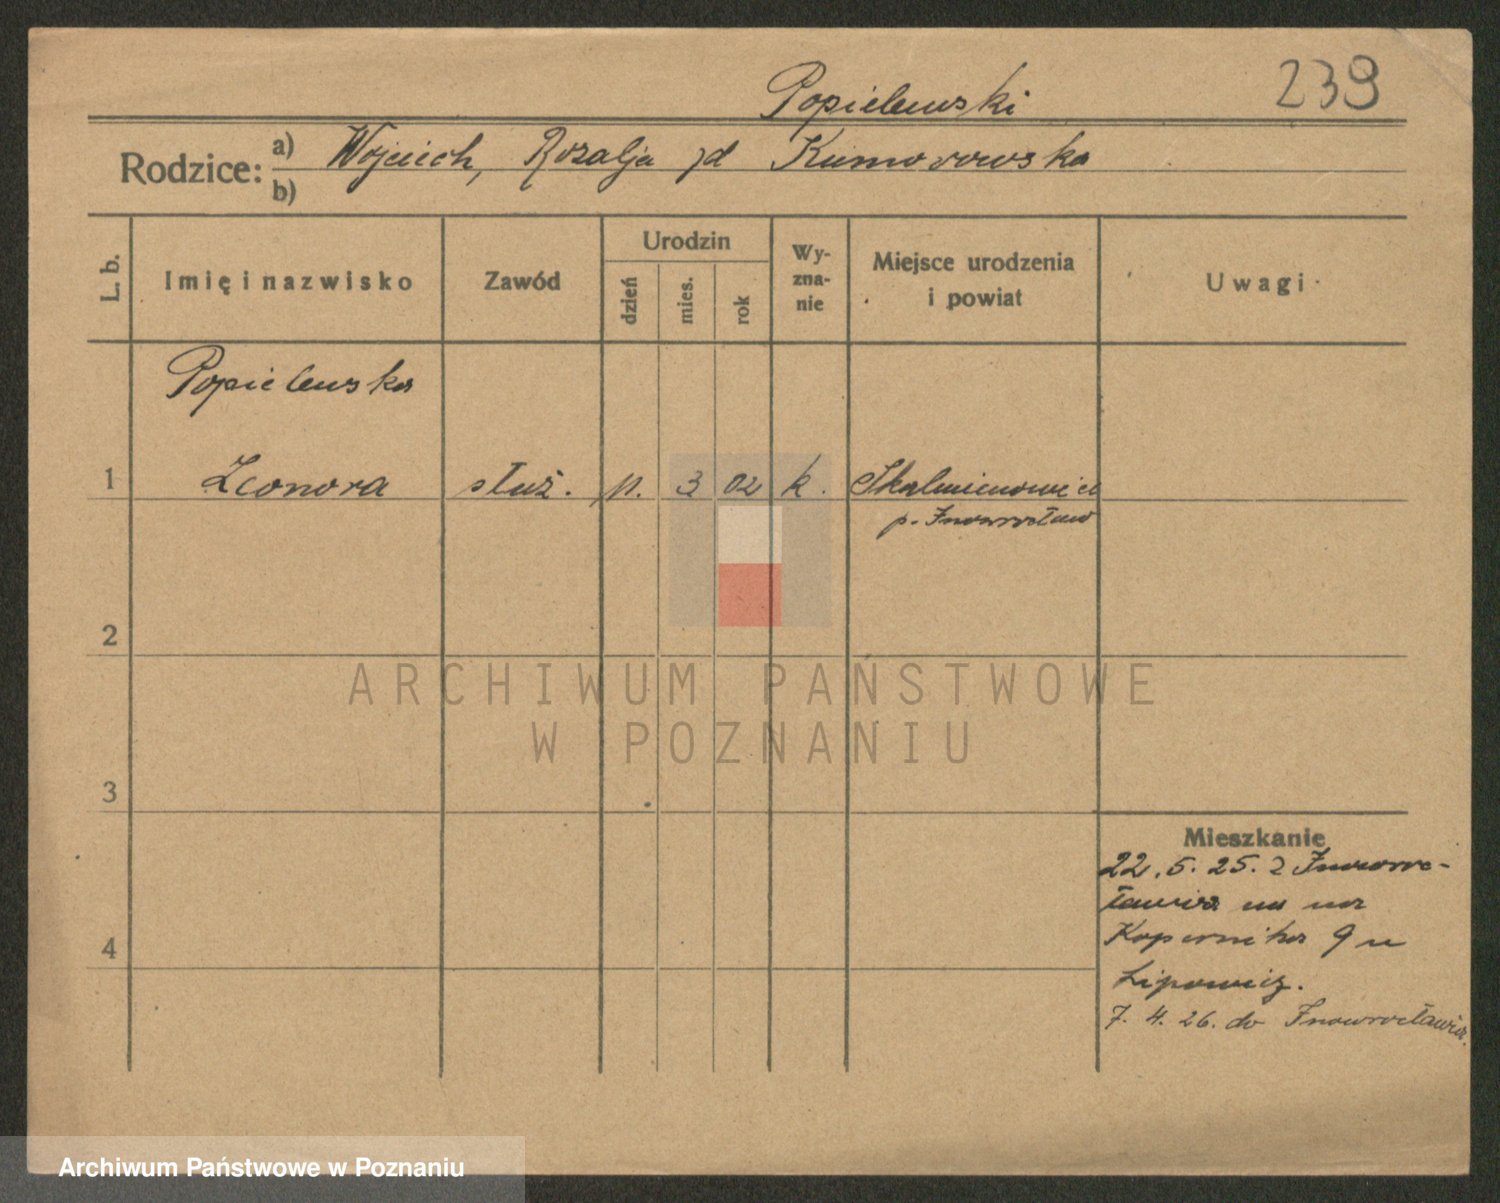 239
Popielewski
Rodzice: a) Wojciech, Rozalja zd Kumorowska
b)
L. b.
Imię i nazwisko
Zawód
Urodzin
dzień
mies.
rok
Wy-
zna-
nie
Miejsce urodzenia
i powiat
Uwagi
Popielewska
1 Leonora służ. 11. 3 02 k.
p. Inowrocław
2
ARCHIWUM PAŃSTWOWE
W POZNANIU
3
Mieszkanie
22. 5. 25. z Inowro-
cławia na
4
Kopernika 9 u
Lipowicz.
7. 4. 26. do Inowrocławia.
Archiwum Państwowe w Poznaniu